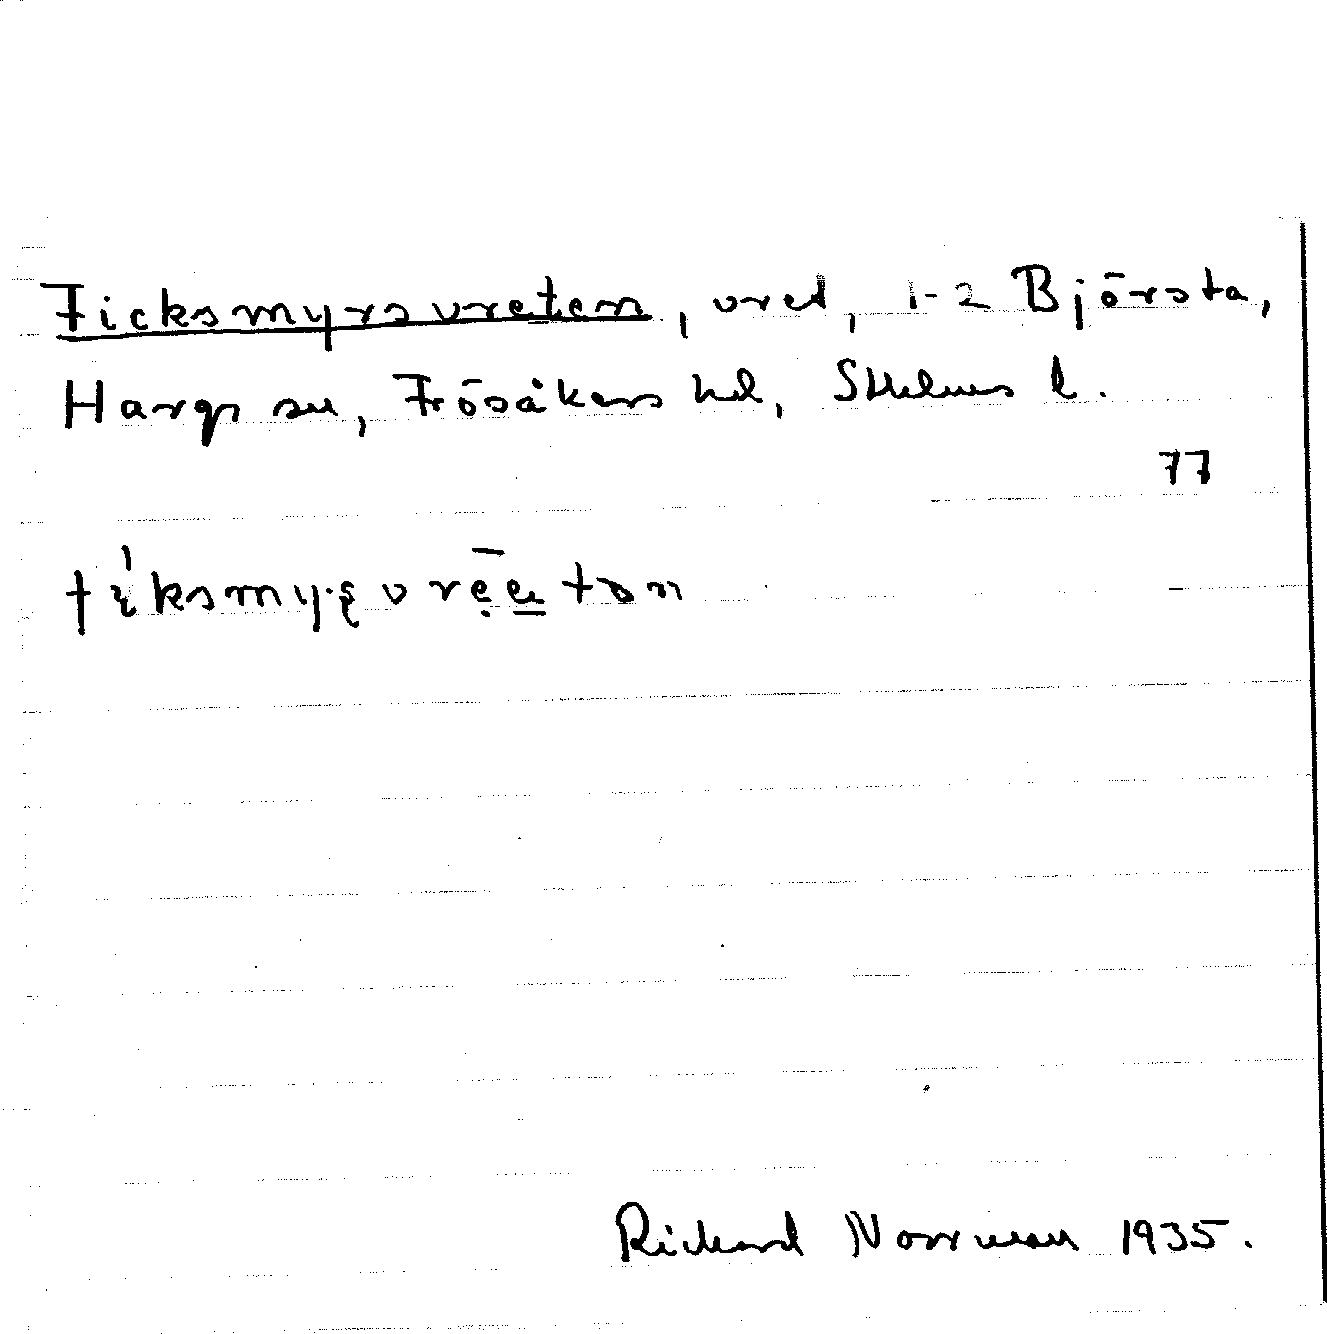 Ficksmyrsvreten, vret, 1-2 Björsta,
Hargs sn, Frösåkers hd, Sthlms l.
77
Rickard Norrman 1935.